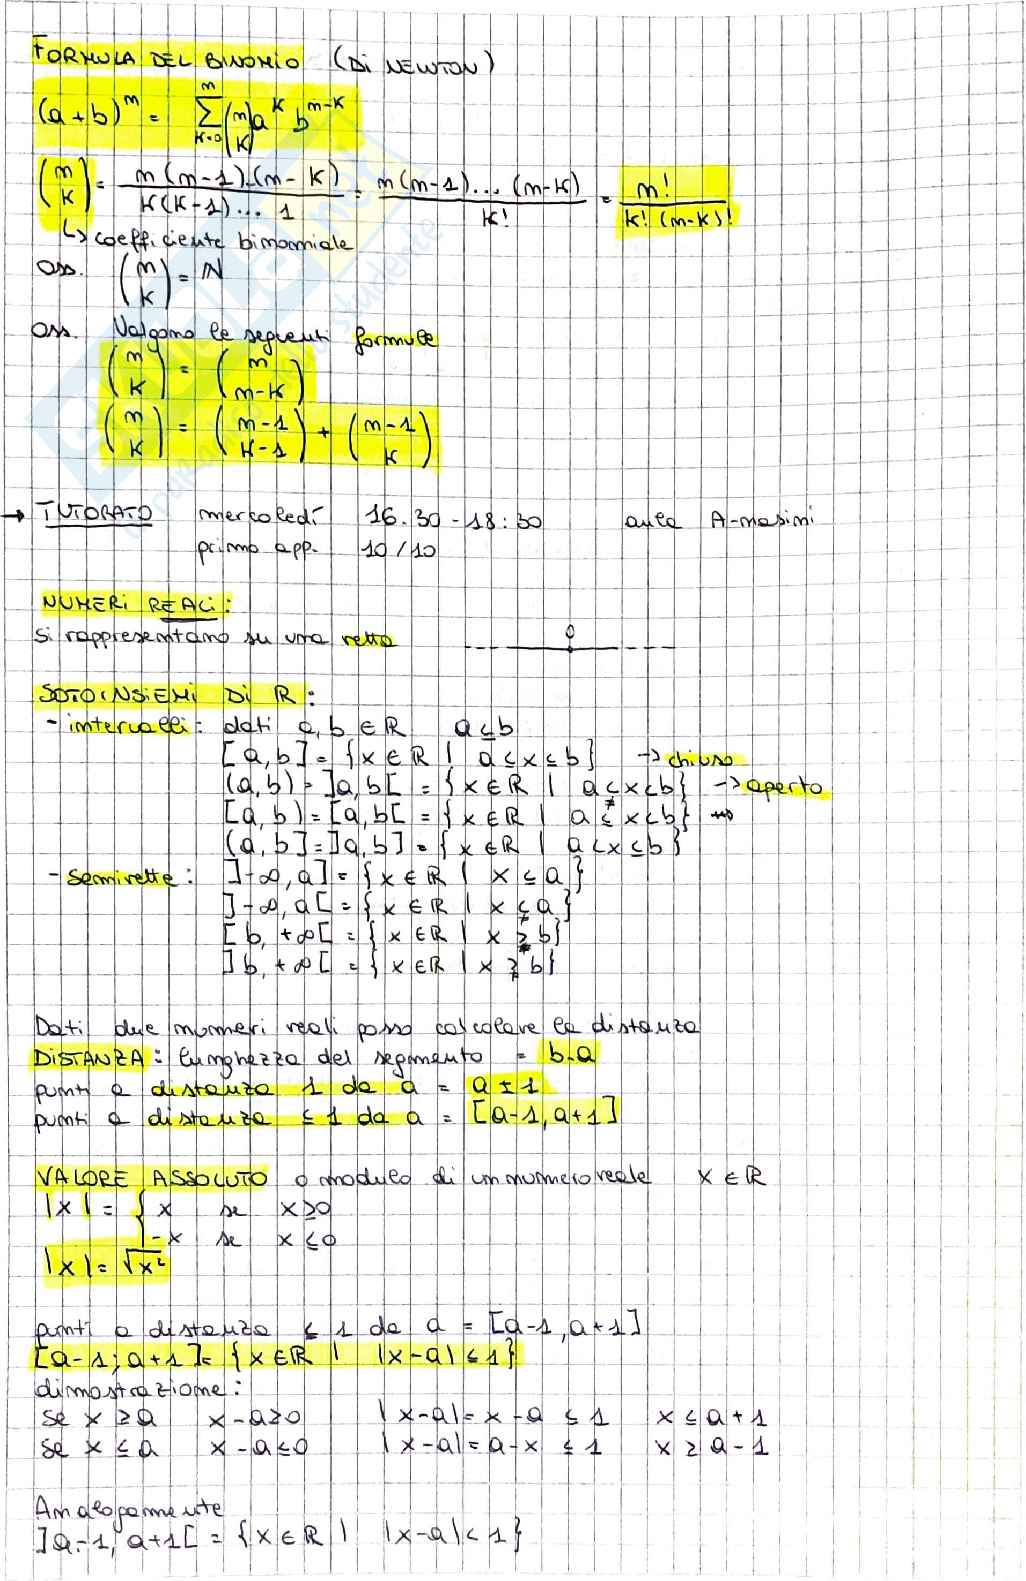 FORMULA DEL BINOMIO (DI NEWTON)
(a+b)^m = ∑_{K=0}^{m} (m K) a^K b^{m-K}
(m K) = m(m-1)...(m-K) / K(K-1)...1 = m(m-1)...(m-K) / K! = m! / K!(m-K)!
↳ coefficiente binomiale
oss. (m K) = N
oss. Valgono le seguenti formule
(m K) = (m m-K)
(m K) = (m-1 K-1) + (m-1 K)
→ TUTORATO mercoledì 16.30-18:30 aula A-masimi
primo app. 10/10
NUMERI REALI:
si rappresentano su una retta
0
SOTOINSIEMI DI R:
- intervalli: dati a, b ∈ R a≤b
[a,b] = {x ∈ R | a≤x≤b} -> chiuso
(a,b) = ]a,b[ = {x ∈ R | a<x<b} -> aperto
[a,b) = [a,b[ = {x ∈ R | a≤x<b}
(a,b] = ]a,b] = {x ∈ R | a<x≤b}
- semirette: ]-∞,a] = {x ∈ R | x≤a}
]-∞,a[ = {x ∈ R | x⪇a}
[b,+∞[ = {x ∈ R | x≥b}
]b,+∞[ = {x ∈ R | x⪈b}
Dati due numeri reali posso calcolare la distanza
DISTANZA: lunghezza del segmento = b-a
punti a distanza 1 da a = a±1
punti a distanza ≤1 da a = [a-1,a+1]
VALORE ASSOLUTO o modulo di un numero reale x ∈ R
|x| = { x se x≥0
-x se x≤0
|x| = √x²
punti a distanza ≤1 da a = [a-1,a+1]
[a-1; a+1] = {x ∈ R | |x-a|≤1}
dimostrazione:
se x≥a x-a≥0 |x-a|=x-a≤1 x≤a+1
se x≤a x-a≤0 |x-a|=a-x≤1 x≥a-1
Analogamente
]a-1, a+1[ = {x ∈ R | |x-a|<1}